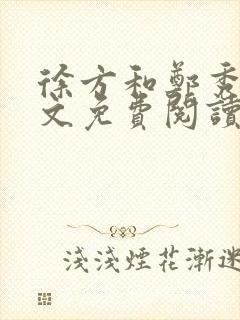 徐方和鄭秀
文免費閱讀
淺淺煙花漸迷